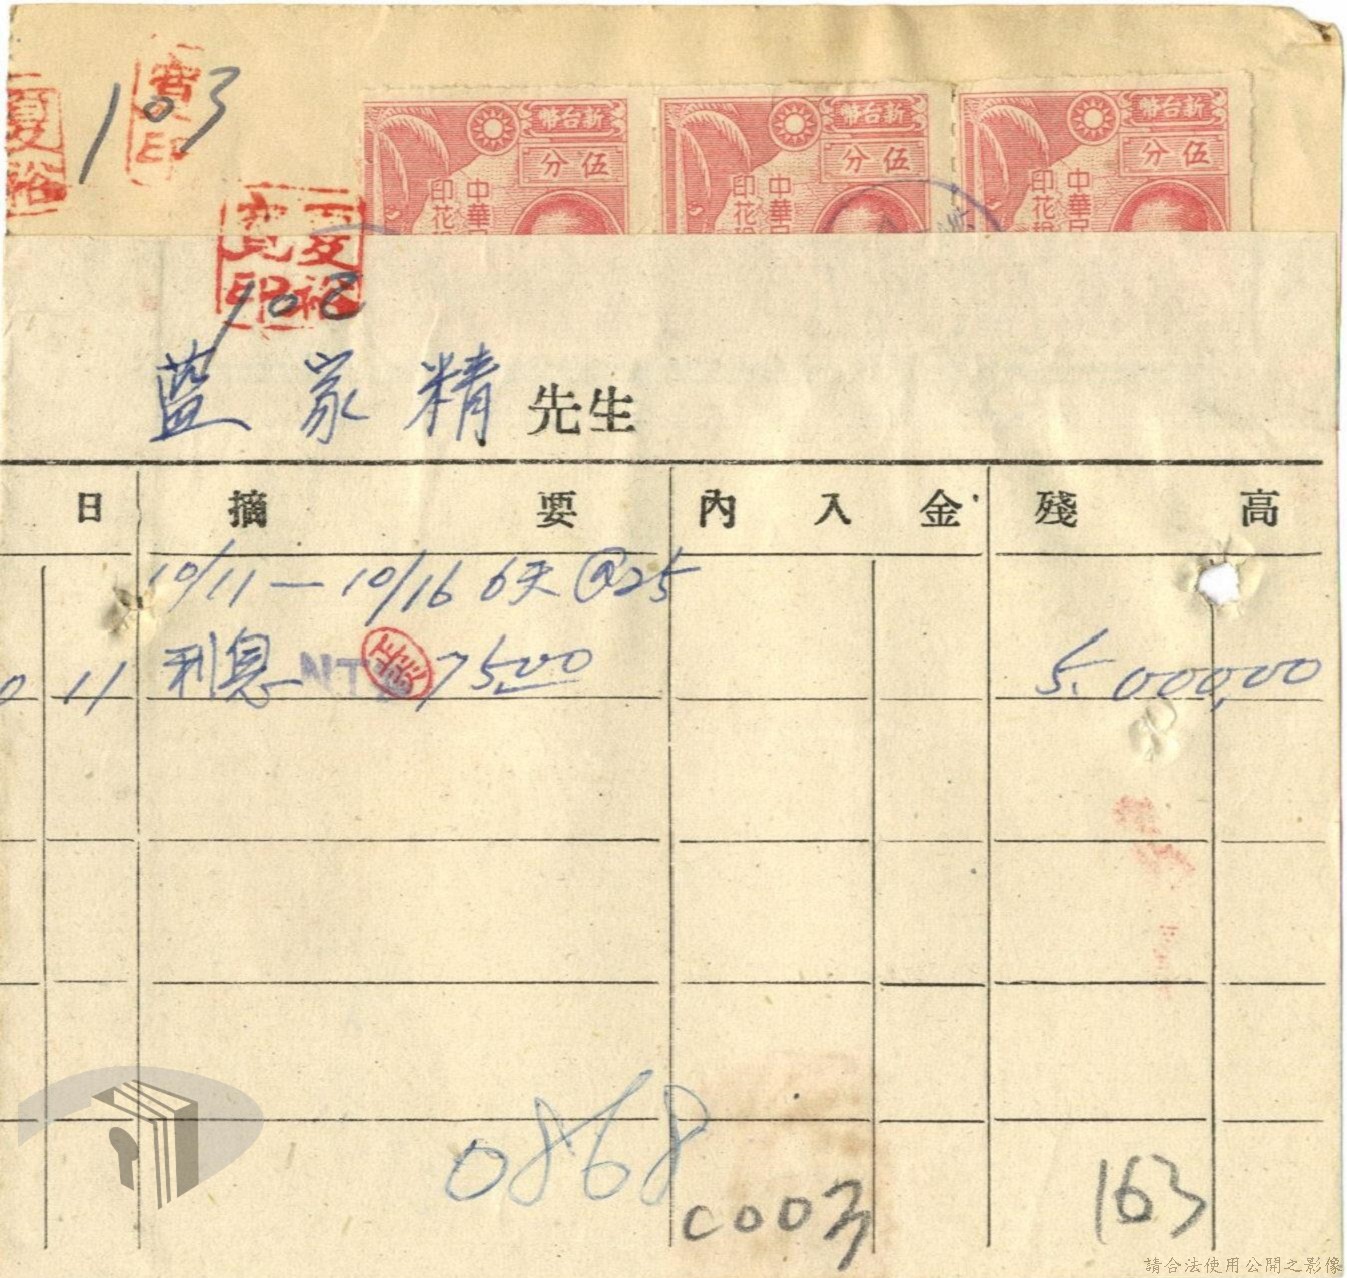 103
新台幣 新台幣 新台幣
伍分 伍分 伍分
中華民 中華民 中華民
印花稅 印花稅 印花稅
藍家精 先生
日 摘要 內入金 殘高
10/11 — 10/16 6天 @25
11 利息 NT 75.00 5,000.00
0868
C003
163
請合法使用公開之影像